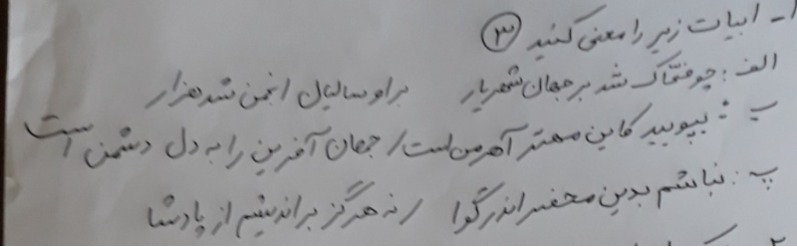 ۱- ابیات زیر را معنی کنید ③
الف: چو ضحاک شد بر جهان شهریار برو سالیان انجمن شد هزار
ب: بپویید کاین مهتر آهرمن است / جهان آفرین را به دل دشمن است
پ: نباشم بدین محضر اندر گوا / نه هرگز براندیشم از پادشا